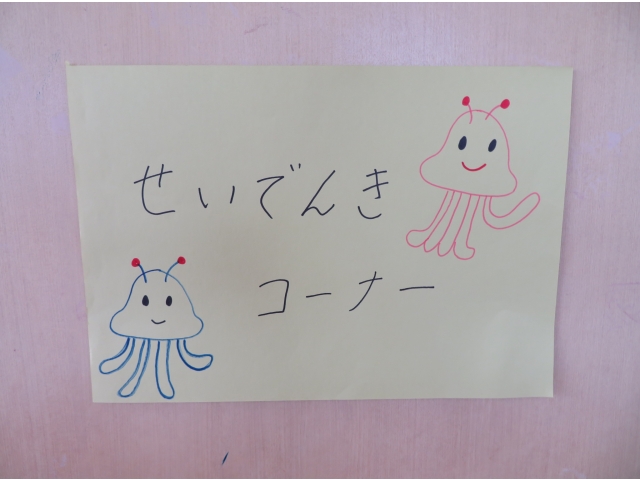 せいでんき
コーナー